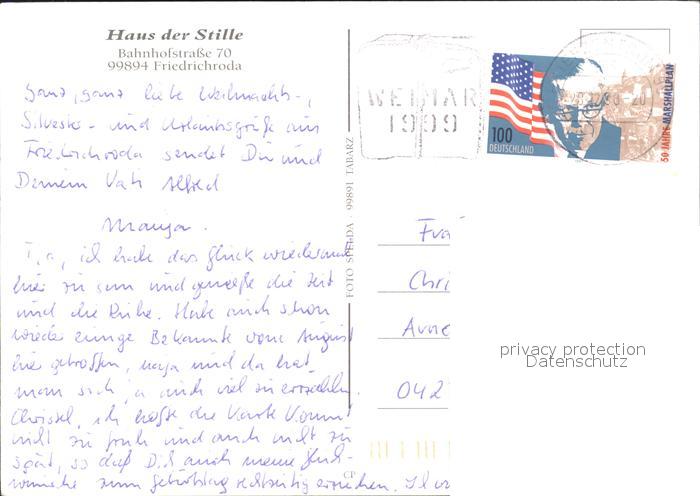 Haus der Stille
Bahnhofstraße 70
99894 Friedrichroda
Ganz, ganz liebe Weihnachts-,
Silvester- und Urlaubsgrüße aus
Friedrichroda sendet Dir und
Deinem Vati Alfred
Manja.
Ja, ich habe das Glück wiedermal
hier zu sein und genieße die Zeit
und die Ruhe. Habe auch schon
wieder einige Bekannte vom August
hier getroffen, naja und da hat
man sich ja auch viel zu erzählen.
Christel, ich hoffe die Karte kommt
nicht zu früh und auch nicht zu
spät, so daß Dich auch meine Glück-
wünsche zum Geburtstag rechtzeitig erreichen.
FOTO STEUDA 99891 TABARZ
CP
WEIMAR
1999
100
DEUTSCHLAND
50 JAHRE MARSHALLPLAN
Fra
Chri
Anne
042
privacy protection
Datenschutz